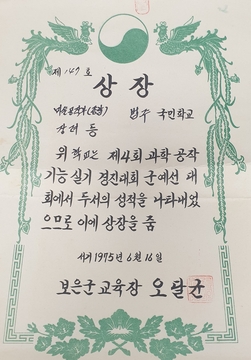 제 147 호
상장
법주 국민학교
장려 등
위 학교는 제4회 과학 공작
기능 실기 경진대회 군예선 대
회에서 두서의 성적을 나타내었
으므로 이에 상장을 줌
서기 1975년 6월 16일
보은군 교육장 오달균